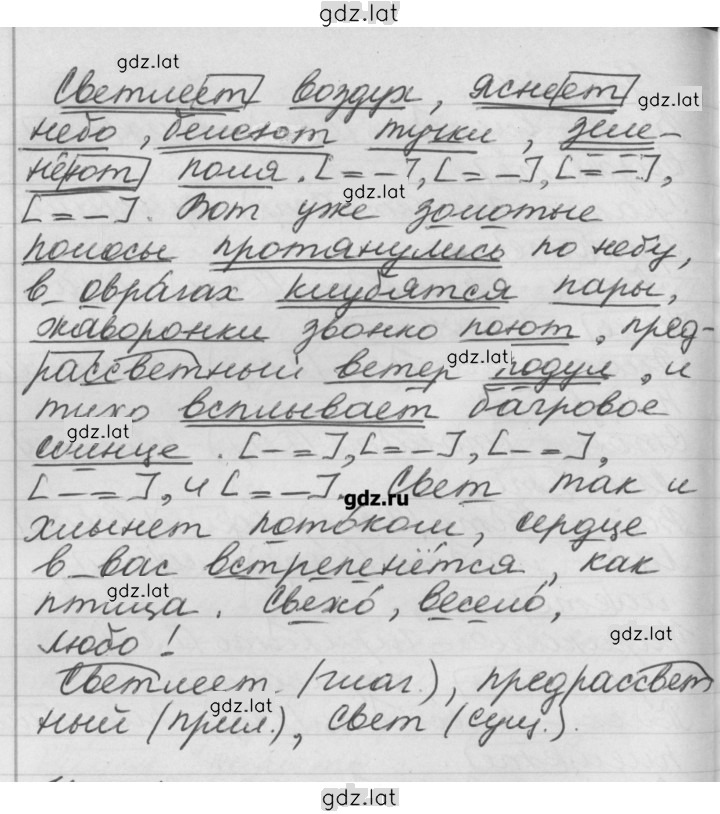 gdz.lat
gdz.lat
Светлеет воздух, яснеет
gdz.lat
небо, белеют тучки, зеле-
неют поля. [= –], [= –], [= –],
gdz.lat
[= –]. Вот уже золотые
полосы протянулись по небу,
в оврагах клубятся пары,
жаворонки звонко поют, пред-
gdz.lat
рассветный ветер подул, и
тихо всплывает багровое
gdz.lat
солнце. [– =], [= –], [– =],
[– =], и [= –]. Свет так и
gdz.ru
хлынет потоком, сердце
в вас встрепенётся, как
gdz.lat
птица. Свежо́, весело́,
gdz.lat
любо!
Светлеет (глаг.), предрассвет
gdz.lat
ный (прил.), свет (сущ.).
gdz.lat